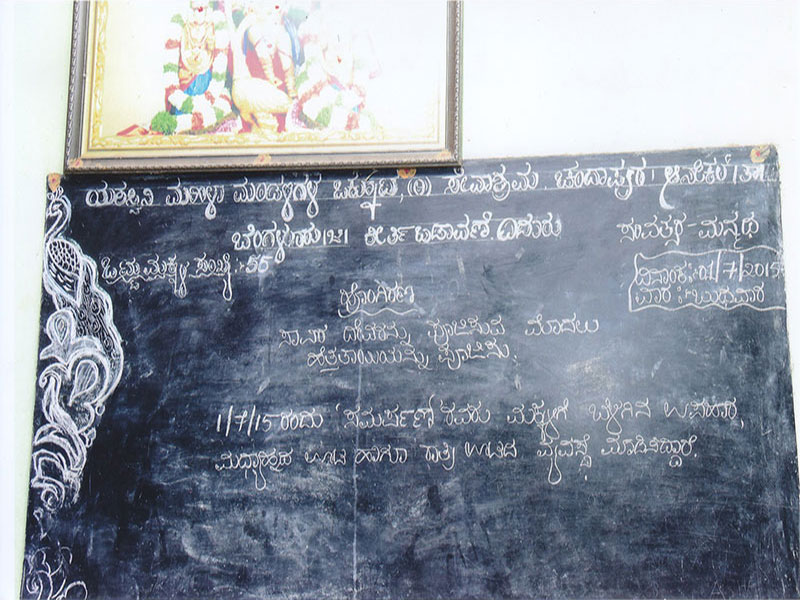 ಯಶಸ್ವಿನಿ ಮಹಿಳಾ ಮಂಡಳಿಗಳ ಒಕ್ಕೂಟ, (ರಿ) ಸೇವಾಶ್ರಮ ಚಂದಾಪುರ। ಆನೇಕಲ್।ತಾ
ಬೆಂಗಳೂರು।ಜಿ। ಕೀರ್ತಿ ಬಡಾವಣೆ. ಸಂವತ್ಸರ - ಮನ್ಮಥ
ಒಟ್ಟು ಮಕ್ಕಳ ಸಂಖ್ಯೆ : 56
ದಿನಾಂಕ : 01/7/2015
ವಾರ :- ಬುಧವಾರ
ಹೊಂಗಿರಣ
ಸಾವಿರ ದೇವರನ್ನು ಪೂಜಿಸುವ ಮೊದಲು
ಹೆತ್ತತಾಯಿಯನ್ನು ಪೂಜಿಸು.
1/7/15 ರಂದು 'ಸಮರ್ಪಣ' ರವರು ಮಕ್ಕಳಿಗೆ ಬೆಳಗಿನ ಉಪಹಾರ,
ಮಧ್ಯಾಹ್ನದ ಊಟ ಹಾಗೂ ರಾತ್ರಿ ಊಟದ ವ್ಯವಸ್ಥೆ ಮಾಡಿಸಿದ್ದಾರೆ.